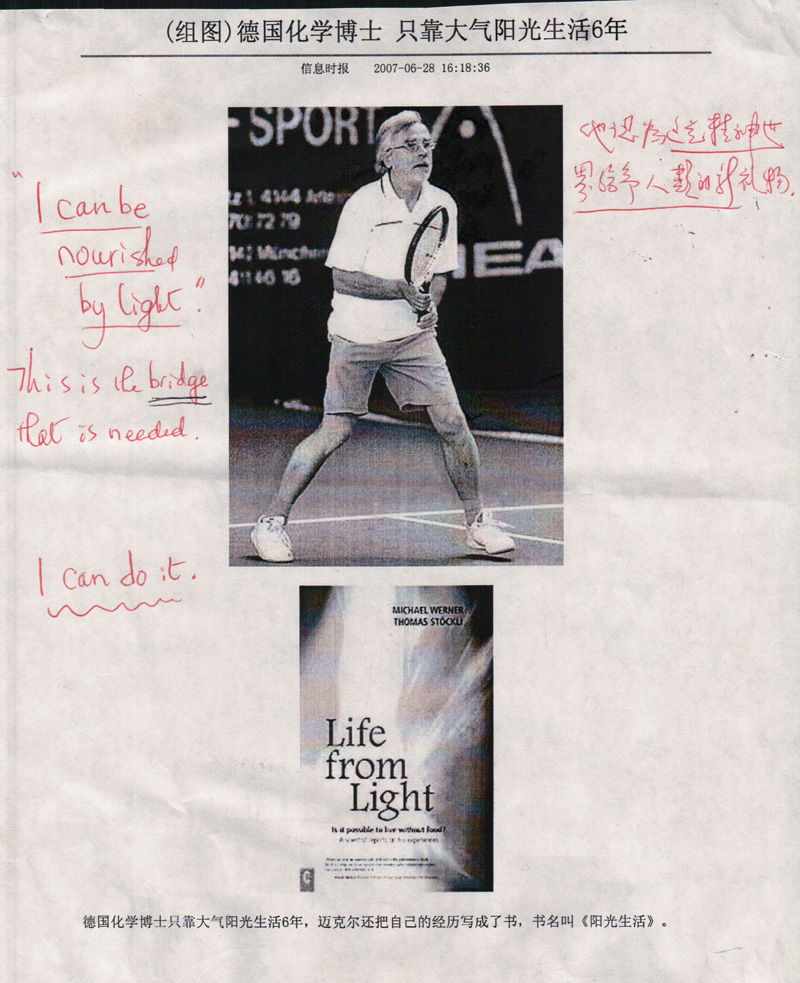 (组图)德国化学博士 只靠大气阳光生活6年
信息时报 2007-06-28 16:18:36
SPORT
他认为这是精神世
界给予人类的新礼物.
"I can be
nourished
by light".
This is the bridge
that is needed.
I can do it.
70:72 79
München
HEA
MICHAEL WERNER
THOMAS STÖCKLI
Life
from
Light
Is it possible to live without food?
A scientist reports on his experiences
德国化学博士只靠大气阳光生活6年，迈克尔还把自己的经历写成了书，书名叫《阳光生活》。